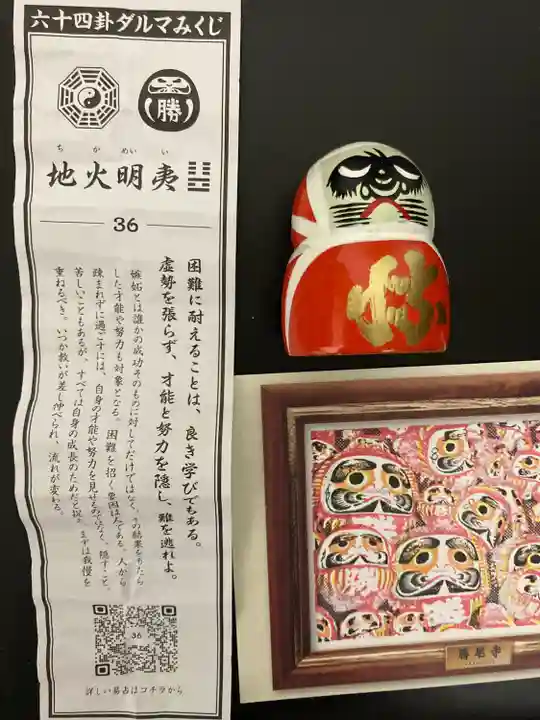 六十四卦ダルマみくじ
勝
ち か めい い
地火明夷
36
困難に耐えることは、良き学びでもある。
虚勢を張らず、才能と努力を隠し、難を逃れよ。
嫉妬とは誰かの成功そのものに対してだけではなく、その結果をもたら
した才能や努力も対象となる。困難を招く要因は人である。人から
疎まれずに過ごすには、自身の才能や努力を見せるのでなく、隠すこと。
苦しいこともあるが、すべては自身の成長のためだと捉え、まずは我慢を
重ねるべき。いつか救いが差し伸べられ、流れが変わる。
36
詳しい易占はコチラから
勝
勝尾寺